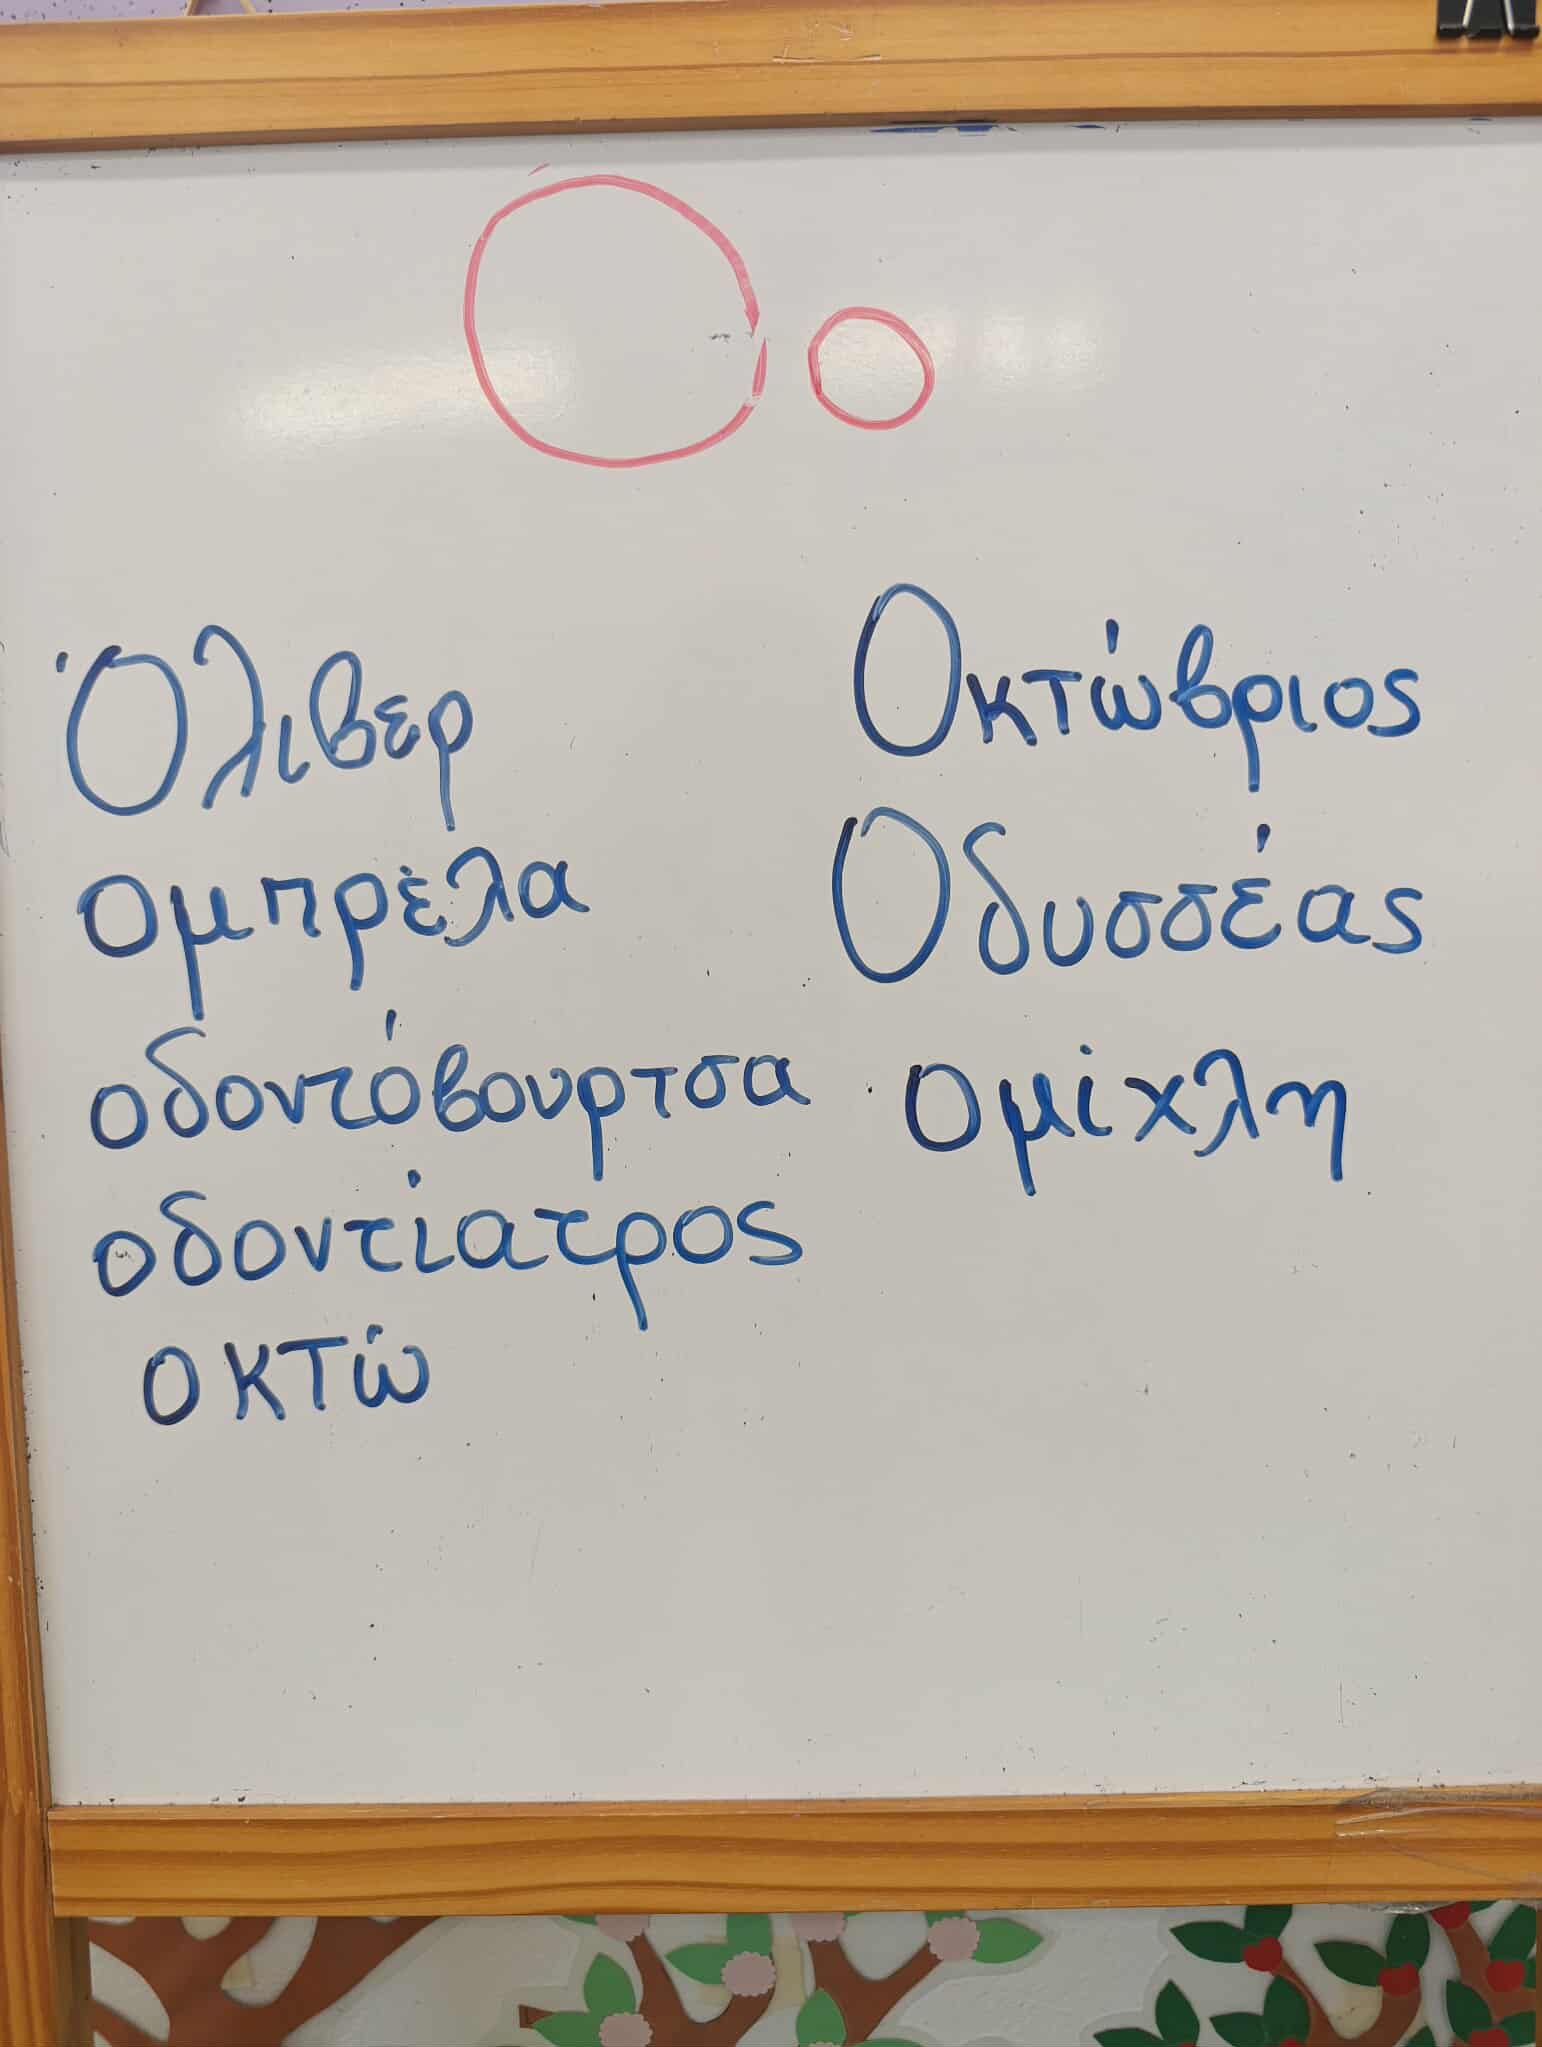 Οο
Όλιβερ
ομπρέλα
οδοντόβουρτσα
οδοντίατρος
οκτώ
Οκτώβριος
Οδυσσέας
ομίχλη